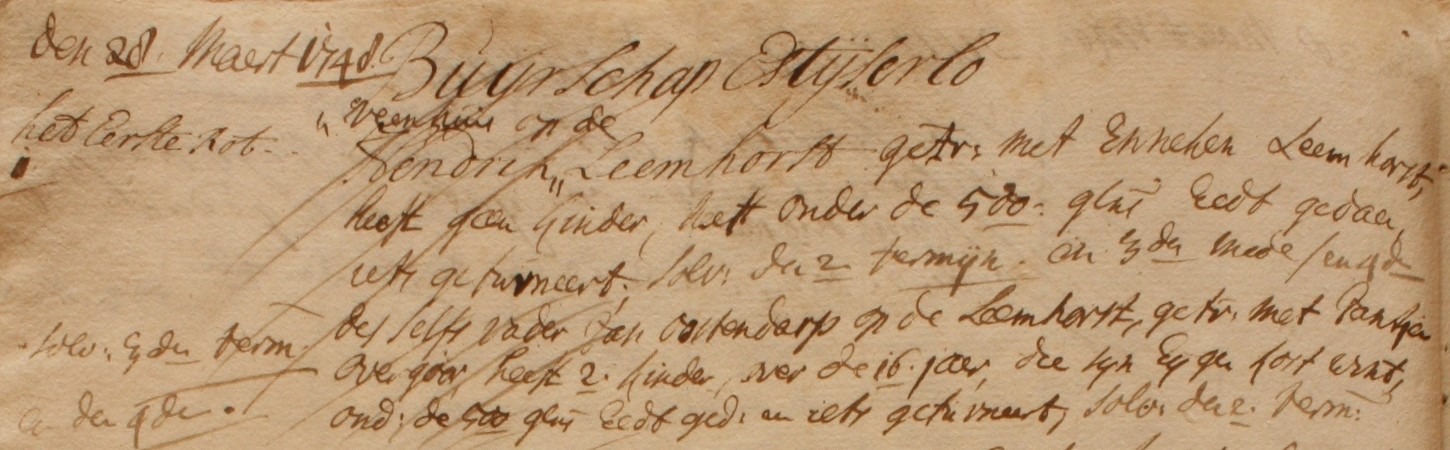 den 28. Maert 1748.
Buyrschap Estijserlo
het Eerste Rot.
" Veenhuis op de
Hendrik " Leemhorst getr: met Enneken Leemhorst,
heeft geen kinder, heeft onder de 500: glns Eedt gedaen,
iets geturneert, solv: den 2 termijn. en 3 den mede / en 4 de
des selfs vader Jan Oostendarp op de Leemhorst, getr: met Tantjen
solv: 3 den term.
Overgoor heeft 2. kinder, over de 16. jaer, die sijn Eygen kost wint,
en den 4 den.
ond: de 500 glns Eedt ged: en iets geturneert, solv: den 2. term: